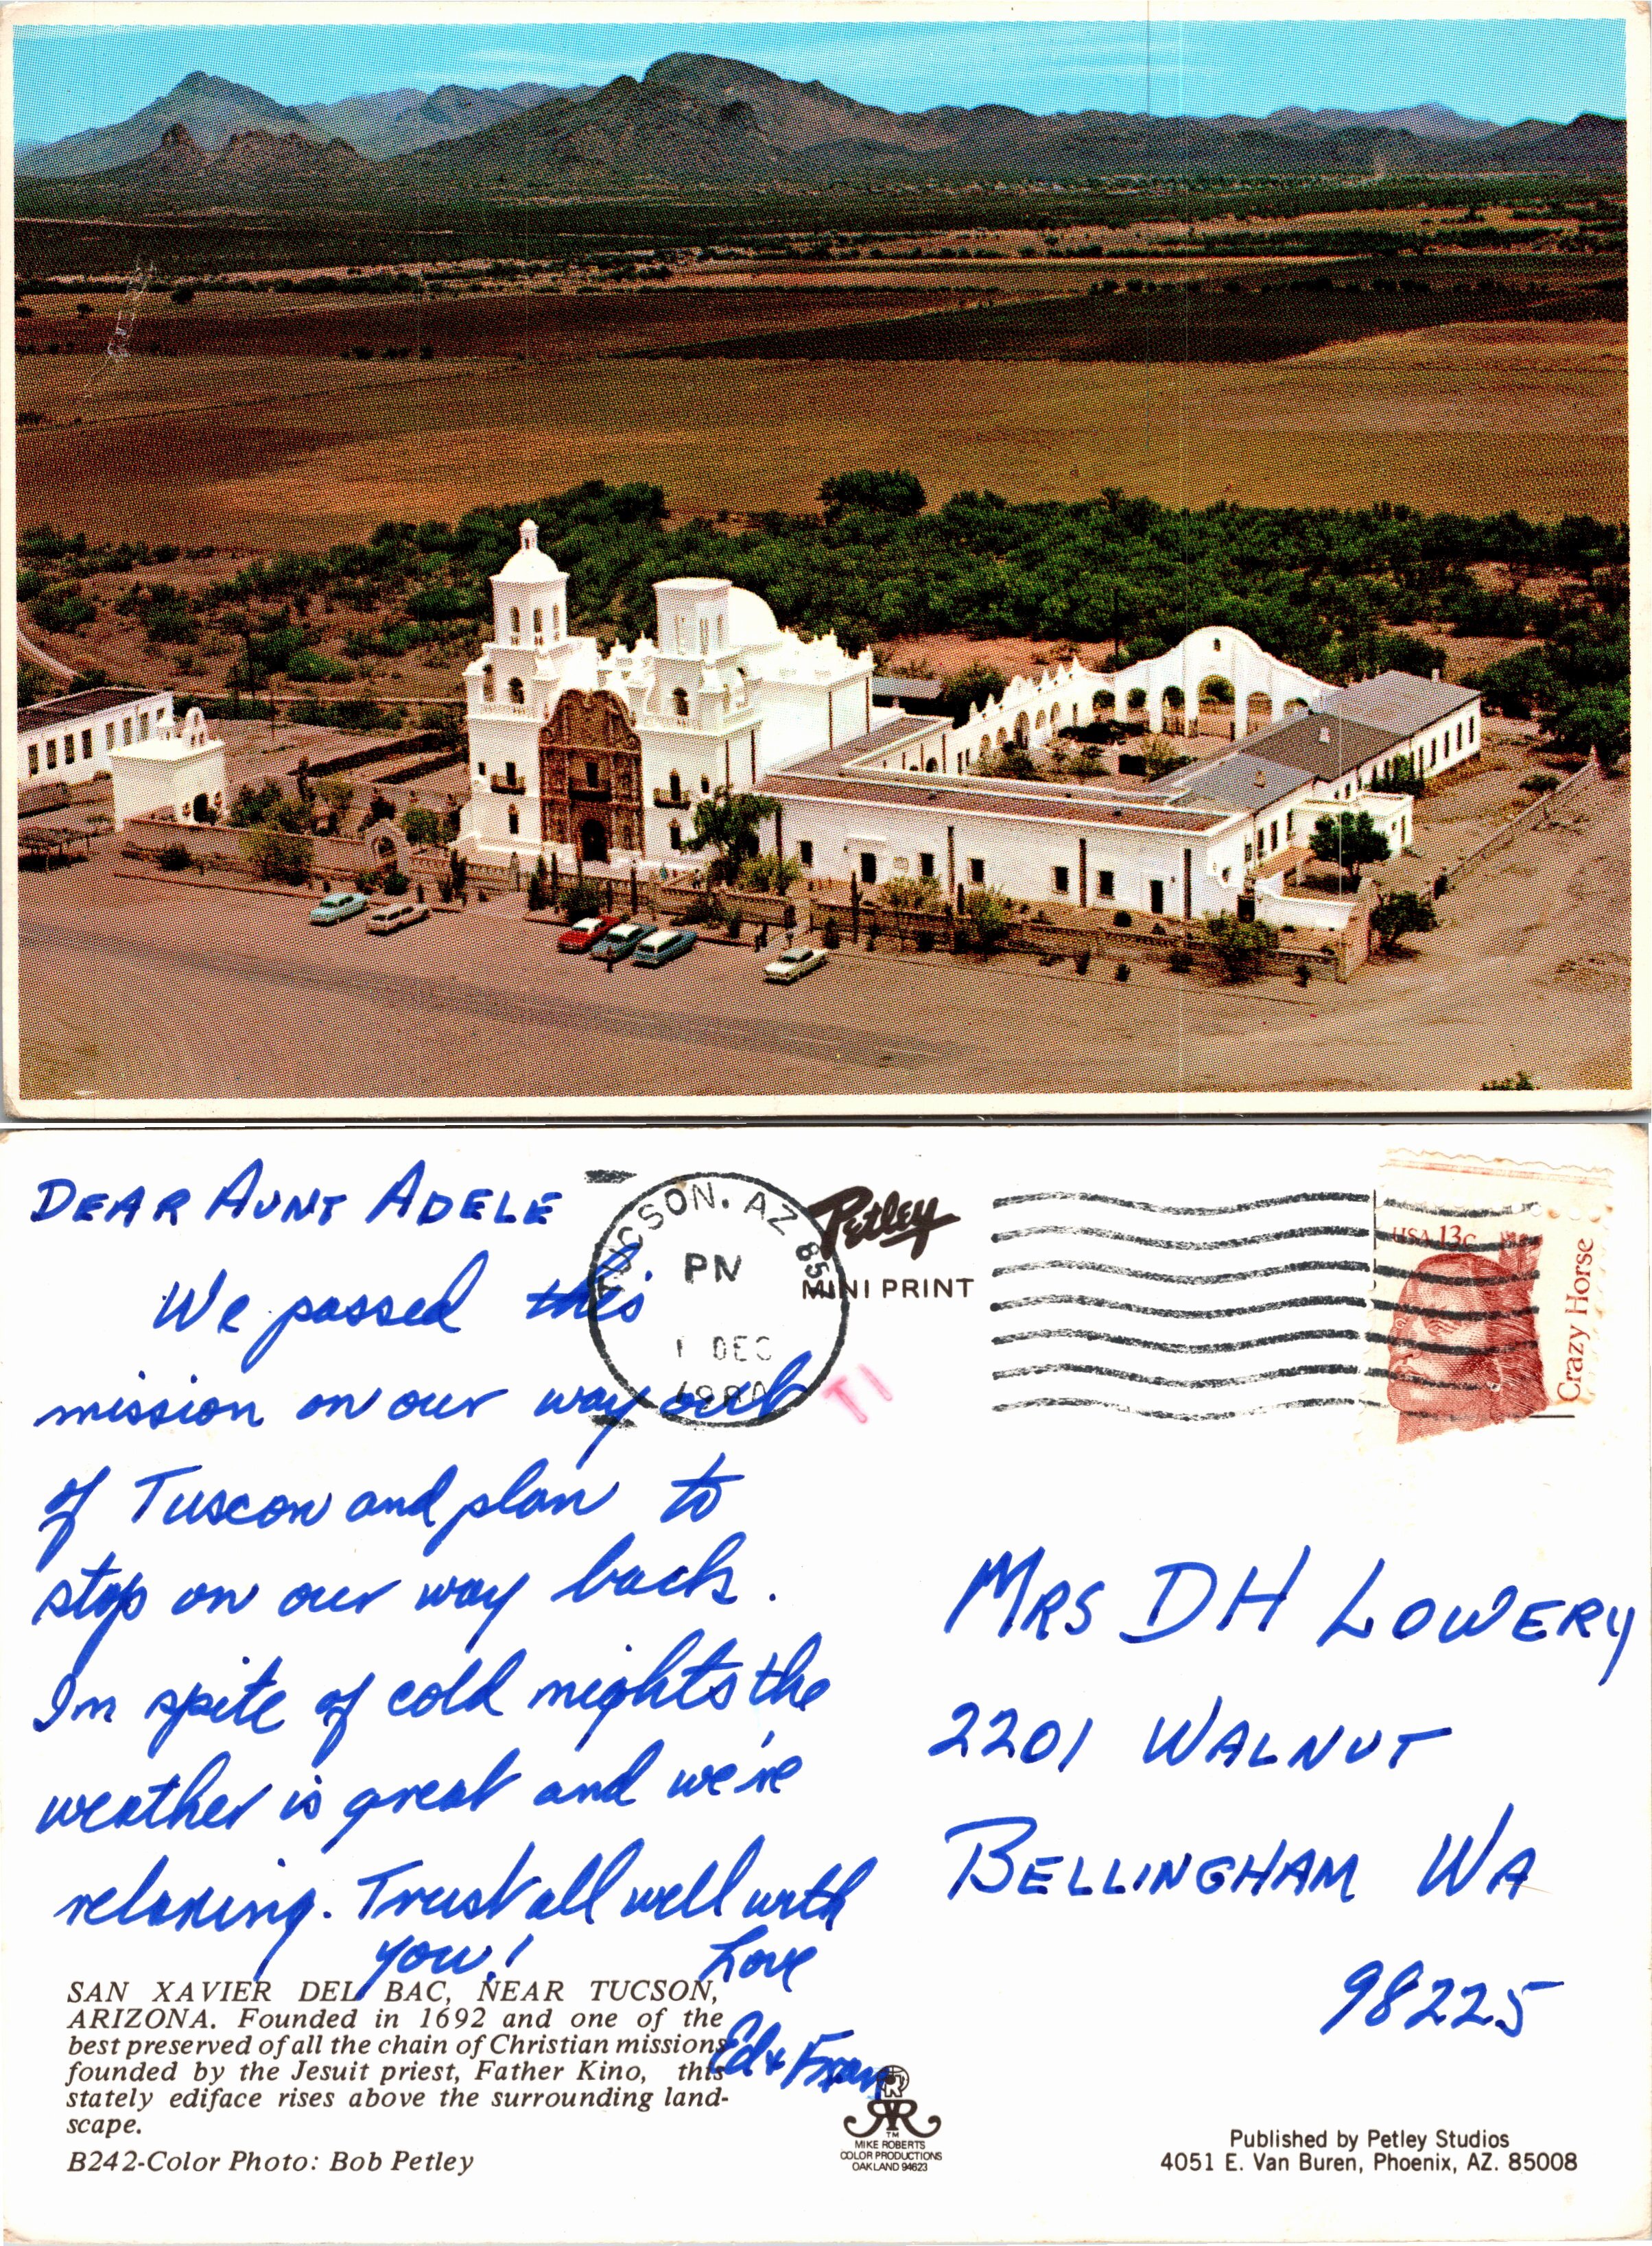 DEAR AUNT ADELE
We passed this
mission on our way out
of Tuscon and plan to
stop on our way back.
In spite of cold nights the
weather is great and we're
relaxing. Trust all well with
you!
Love
Ed & Fran
SAN XAVIER DEL BAC, NEAR TUCSON,
ARIZONA. Founded in 1692 and one of the
best preserved of all the chain of Christian missions
founded by the Jesuit priest, Father Kino, this
stately ediface rises above the surrounding land-
scape.
B242-Color Photo: Bob Petley
TUCSON, AZ 85
PM
1 DEC
Petley
MINI PRINT
USA 13c
Crazy Horse
MRS DH LOWERY
2201 WALNUT
BELLINGHAM WA
98225
TM
MIKE ROBERTS
COLOR PRODUCTIONS
OAKLAND 94623
Published by Petley Studios
4051 E. Van Buren, Phoenix, AZ. 85008